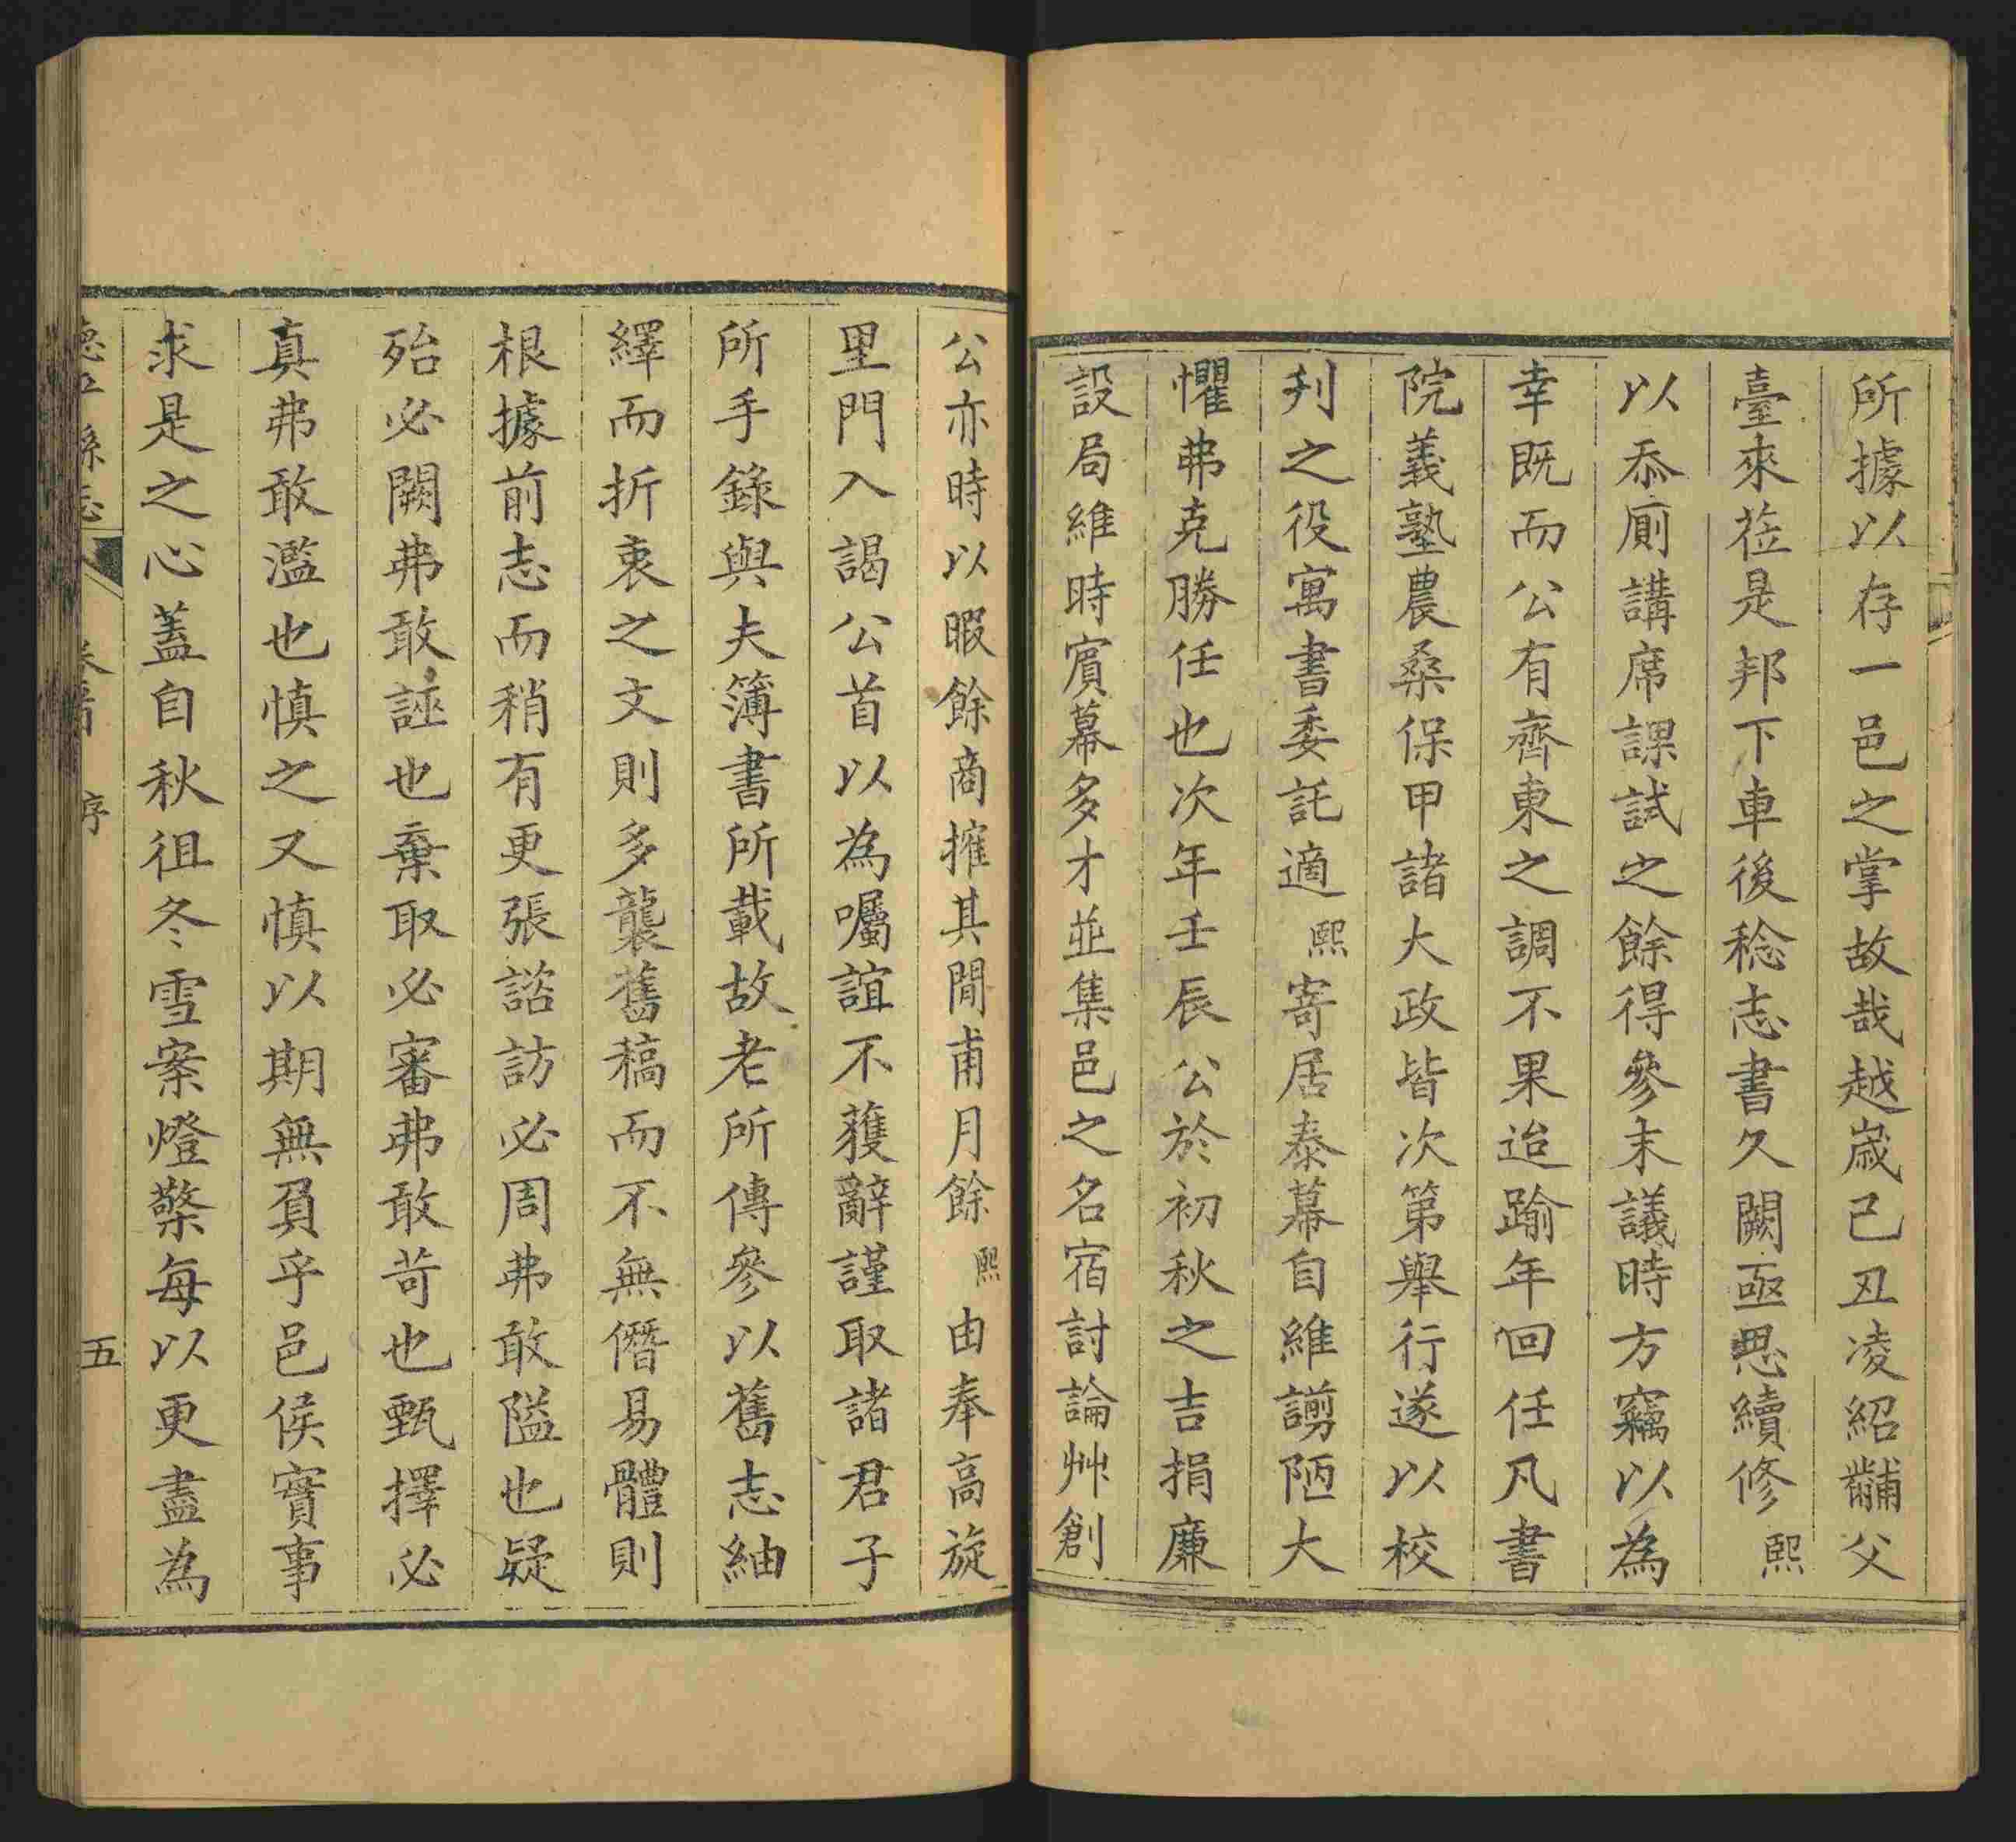 所據以存一邑之掌故哉越嵗己丑凌紹黼父
臺來莅是邦下車後稔志書久闕亟思續修熙
以忝廁講席課試之餘得參末議時方竊以為
幸既而公有齊東之調不果迨踰年回任凡書
院義塾農桑保甲諸大政皆次第舉行遂以校
刋之役寓書委託適熙寄居泰幕自維謭陋大
懼弗克勝任也次年壬辰公於初秋之吉捐廉
設局維時賓幕多才並集邑之名宿討論艸創
公亦時以暇餘商搉其閒甫月餘熙由奉高旋
里門入謁公首以為囑誼不獲辭謹取諸君子
所手錄與夫簿書所載故老所傳參以舊志紬
繹而折衷之文則多襲舊稿而不無僭易體則
根據前志而稍有更張諮訪必周弗敢隘也疑
殆必闕弗敢誣也棄取必審弗敢苛也甄擇必
真弗敢濫也慎之又慎以期無負乎邑侯實事
求是之心蓋自秋徂冬雪案燈檠每以更盡為
德平縣志 卷首 序 五